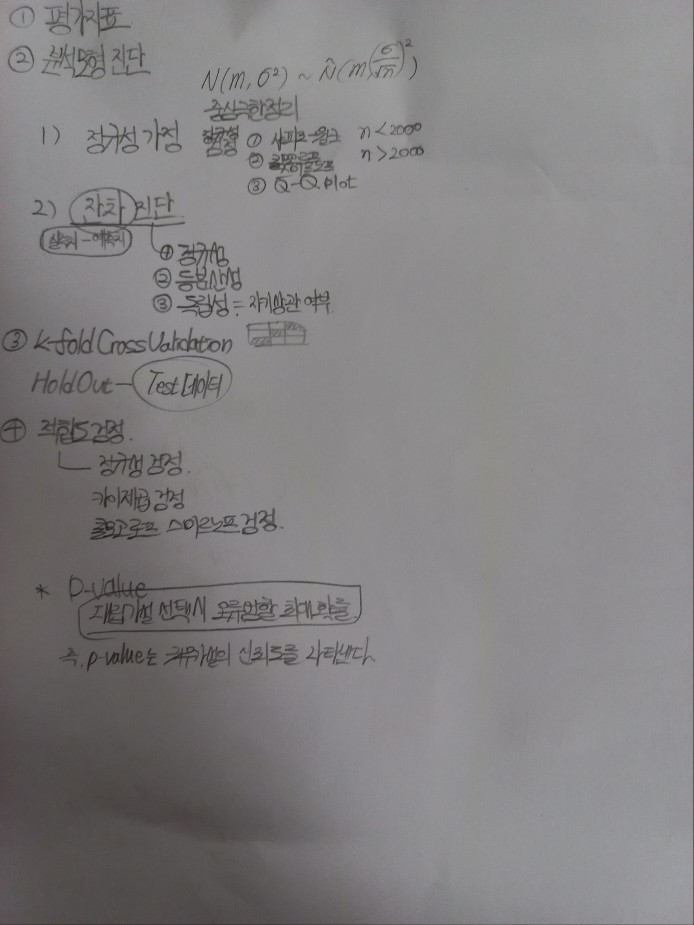 ① 평가지표
② 분석모형 진단
N(m, σ²) ~ N̄(m, (σ/√n)²)
중심극한정리
1) 정규성 가정 정규성 검정 ① 샤피로-윌크 n<2000
② 콜모고로프 스미르노프 n>2000
③ Q-Q plot
2) 잔차 진단
실측치-예측치
① 정규성
② 등분산성
③ 독립성 = 자기상관 여부.
③ K-fold Cross Validation
Hold Out - Test 데이터
④ 적합도 검정.
정규성 검정.
카이제곱 검정
콜모고로프 스미르노프 검정.
* P-value
대립가설 선택시 오류범할 최대 확률.
즉, p-value는 귀무가설의 신뢰도를 나타낸다.